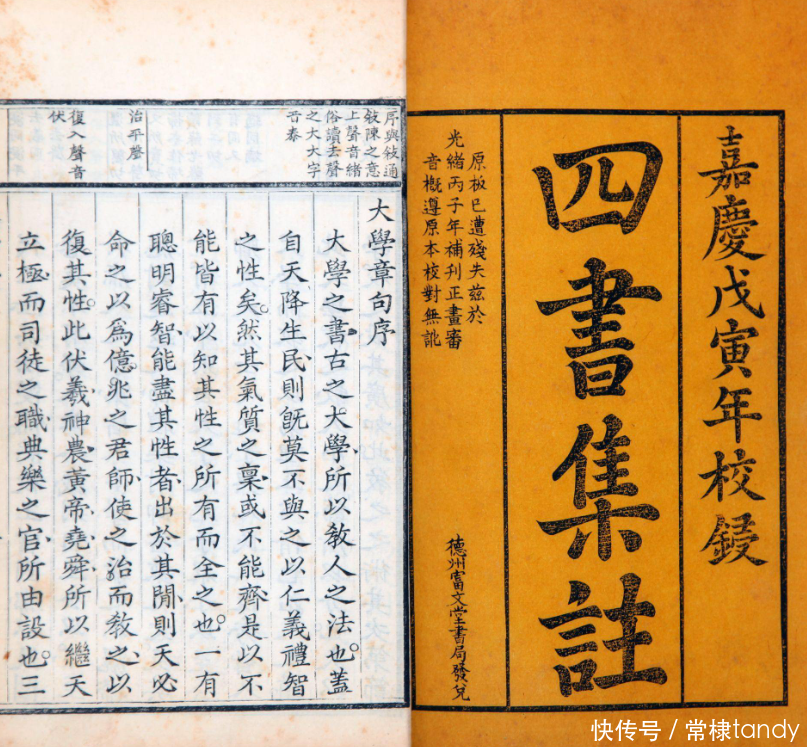 嘉慶戊寅年校鋟
四書集註
原板已遭殘失茲於
光緒丙子年補刊正畫審
音概遵原本校對無訛
德州富文堂書局發兌
序與敍通
敍陳之意
上聲音緒
俗讀去聲
之大大字
音泰
治平聲
復入聲音
伏
大學章句序
大學之書古之大學所以敎人之法也。蓋
自天降生民則旣莫不與之以仁義禮智
之性矣。然其氣質之稟或不能齊是以不
能皆有以知其性之所有而全之也。一有
聰明睿智能盡其性者出於其閒則天必
命之以爲億兆之君師使之治而敎之以
復其性。此伏羲神農黃帝堯舜所以繼天
立極而司徒之職典樂之官所由設也。三
快传号 / 常棣tandy